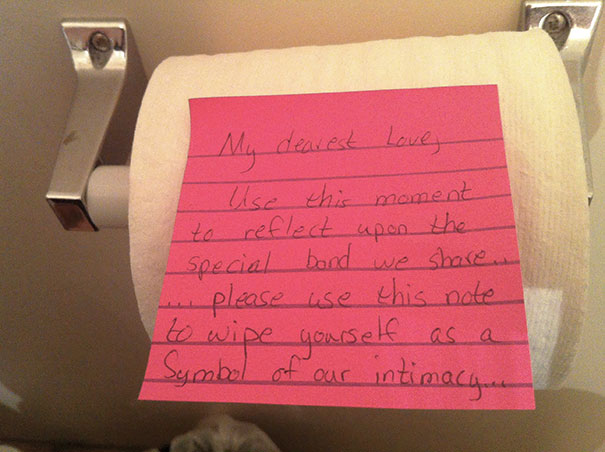 My dearest Love,
Use this moment
to reflect upon the
special bond we share...
.... please use this note
to wipe yourself as a
Symbol of our intimacy....